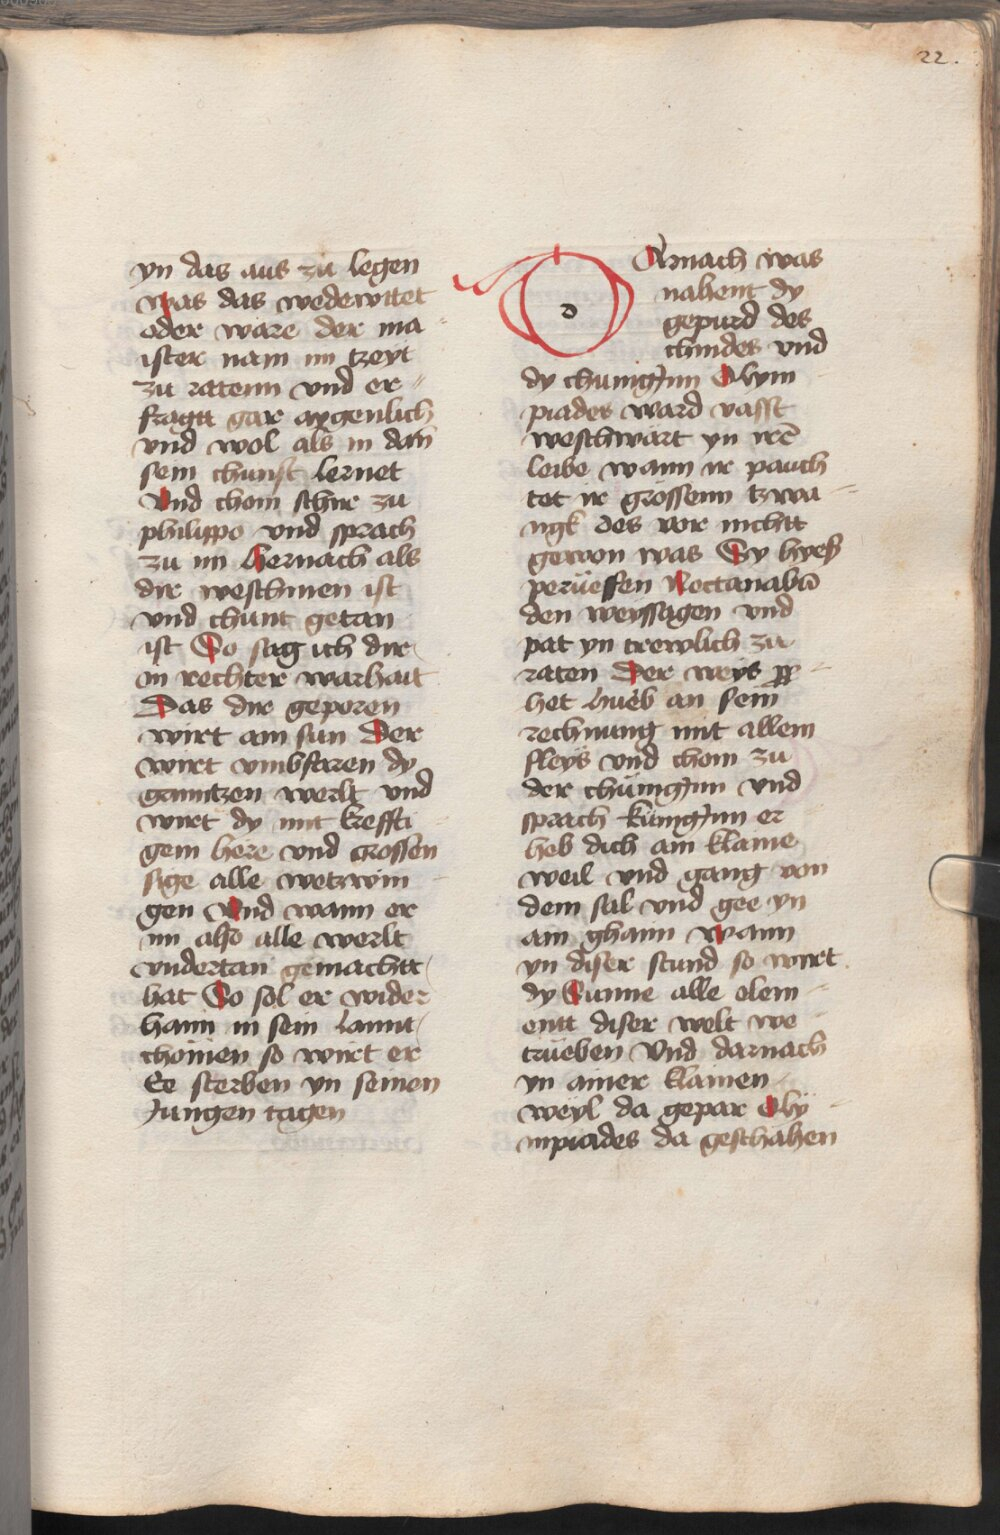 22.
yn das aus zu legen
was das wedewttet
oder ware der ma
ister nam im tzeyt
zu ratenn vnd er
fragtt gar aygenlich
vnd wol als in dan̄
sein chunst lernet
Vnd chom schir zu
philippo vnd sprach
zu im Hernach als
dir weschinen ist
vnd chunt getan
ist So sag ich dir
in rechter warhait
Das dir geporen
wirt ain sun Der
wirt vmbfaren dy
ganntzen werlt vnd
wirt dy mit kreffti
gem here vnd grossen
sige alle wetzwin
gen Vnd wann er
im also alle werlt
vndertan gemachtt
hat So sol er wider
haim in sein lannt
chömen so wirt er
Ee sterben yn seinen
Jungen tagen
D Arnach was
nahent dy
gepurd des
chindes vnd
dy chunigīnn Olym
piades ward vasst
weschwärt yn irē
leibe wann ir pauch
tet ir grössenn tzwa
ngk des vor nichtt
gewon was Sy hyeß
perüeffen Nectanabū
den weyssagen vnd
pat yn trewlich zu
raten Der weys pp
het hueb an sein
rechnung mit allem
fleys vnd chom zu
der chünigīnn vnd
sprach künigīnn er
heb dich ain klaine
weil vnd gang von
dem sal vnd gee yn
ain ghaim Wann
yn diser stund so wirt
dy Sunne alle elem
entt diser welt we
trüeben Vnd darnach
yn ainer klainen
weyl da gepar Oly
mpiades da geschahen